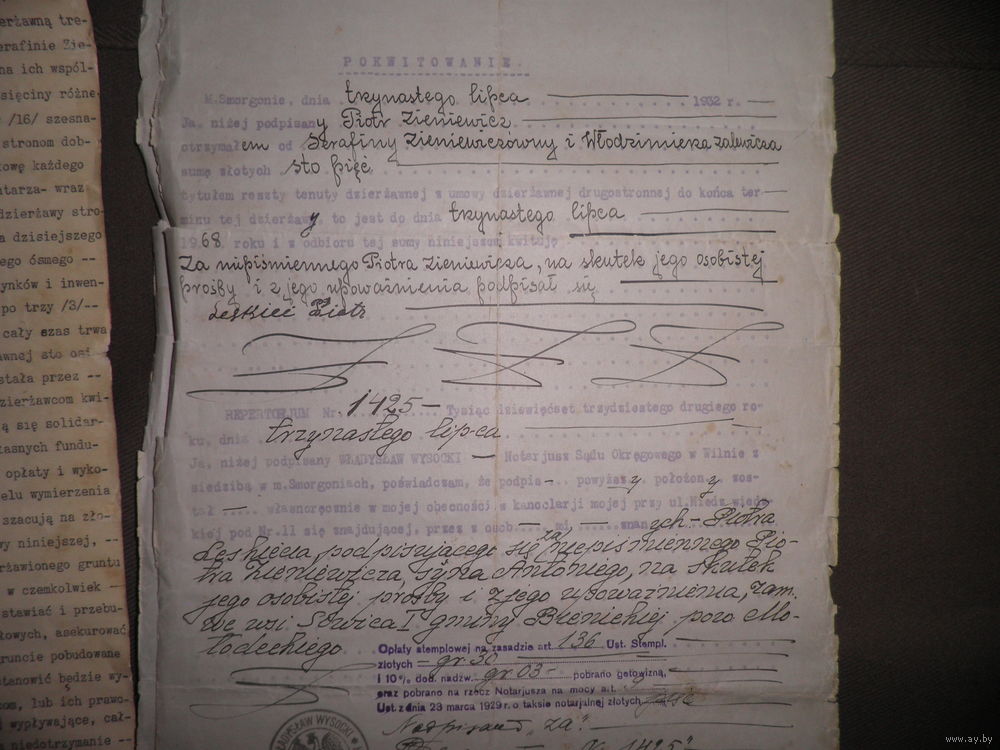 erżawną tre-
erafinie Zie-
na ich wspól-
sięciny różne
/16/ szesna-
stronom dob-
kowę każdego
ntarza- wraz
dzierżawy stro-
a dzisiejszego
ego ósmego --
ynków i inwen-
po trzy /3/--
cały czas trwa
awnej sto osi
stała przez --
zierżawcom kwi-
ą się solidar-
łasnych fundu-
opłaty i wyko-
elu wymierzenia
szacują na zło-
wy niniejszej, --
erżawionego gruntu
w czemkolwiek --
stawiać i przebu-
łowych, asekurować
gruncie pobudowane
stanowić będzie wy-
com, lub ich prawo-
i wypływające, cał-
niedotrzymanie --
POKWITOWANIE.
M.Smorgonie, dnia trzynastego lipca 1932 r.
Ja, niżej podpisany Piotr Zieniewicz
otrzymałem od Serafiny Zieniewiczówny i Włodzimierza Zalewicza
sumę złotych sto pięć
tytułem reszty tenuty dzierżawnej z umowy dzierżawnej drugostronnej do końca ter-
minu tej dzierżawy, to jest do dnia trzynastego lipca
1968 roku i z odbioru tej sumy niniejszem kwituję
Za niepiśmiennego Piotra Zieniewicza, na skutek jego osobistej
prośby i z jego upoważnienia podpisał się
Leskieć Piotr
REPERTORIUM Nr. 1425 – Tysiąc dziewięćset trzydziestego drugiego ro-
ku, dnia trzynastego lipca
Ja, niżej podpisany WŁADYSŁAW WYSOCKI – Notarjusz Sądu Okręgowego w Wilnie z
siedzibą w m.Smorgoniach, poświadczam, że podpis – powyższy położony zos-
tał – własnoręcznie w mojej obecności w kancelarji mojej przy ul.Niedźwiedz-
kiej pod Nr.11 się znajdującej, przez z osob – mi znanych – Piotra
Leskiecia, podpisującego się za niepiśmiennego Pio-
tra Zieniewicza, syna Antoniego, na skutek
jego osobistej prośby i z jego upoważnienia, zam.
we wsi I gminy Bienickiej pow. Mo-
łodeckiego
Opłaty stemplowej na zasadzie art. 136 Ust. Stempl.
złotych = gr. 30
i 10% dod. nadzw. gr. 03 – pobrano gotowizną,
oraz pobrano na rzecz Notarjusza na mocy art.
Ust. z dnia 23 marca 1929 r. o taksie notarjalnej złotych
Nadpisano „za".
WŁADYSŁAW WYSOCKI
Nr 1425
www.ay.by